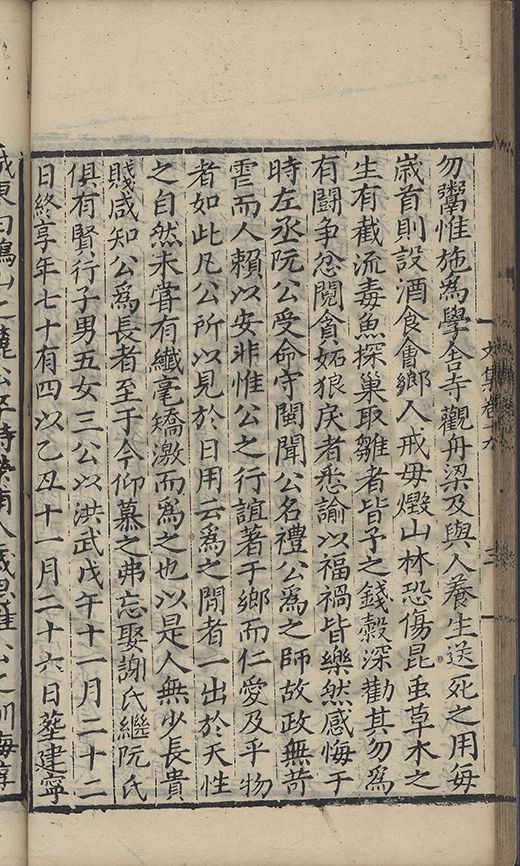 文集卷十九
三
勿鬻惟施為學舍寺觀舟梁及與人養生送死之用每
歲首則設酒食會鄉人戒毋燬山林恐傷昆虫草木之
生有截流毒魚探巢取雛者皆予之錢穀深勸其勿為
有鬪争忿鬩貪妬狼戾者悉諭以福禍皆樂然感悔于
時左丞阮公受命守閩聞公名禮公為之師故政無苛
而人賴以安非惟公之行誼著于鄉而仁愛及乎物
者如此凡公所以見於日用云為之間者一出於天性
之自然未嘗有纖毫矯激而為之也以是人無少長貴
賤咸知公為長者至于今仰慕之弗忘娶謝氏繼阮氏
俱有賢行子男五女三公以洪武戊午十一月二十二
日終享年七十有四以乙丑十一月二十六日塟建寧